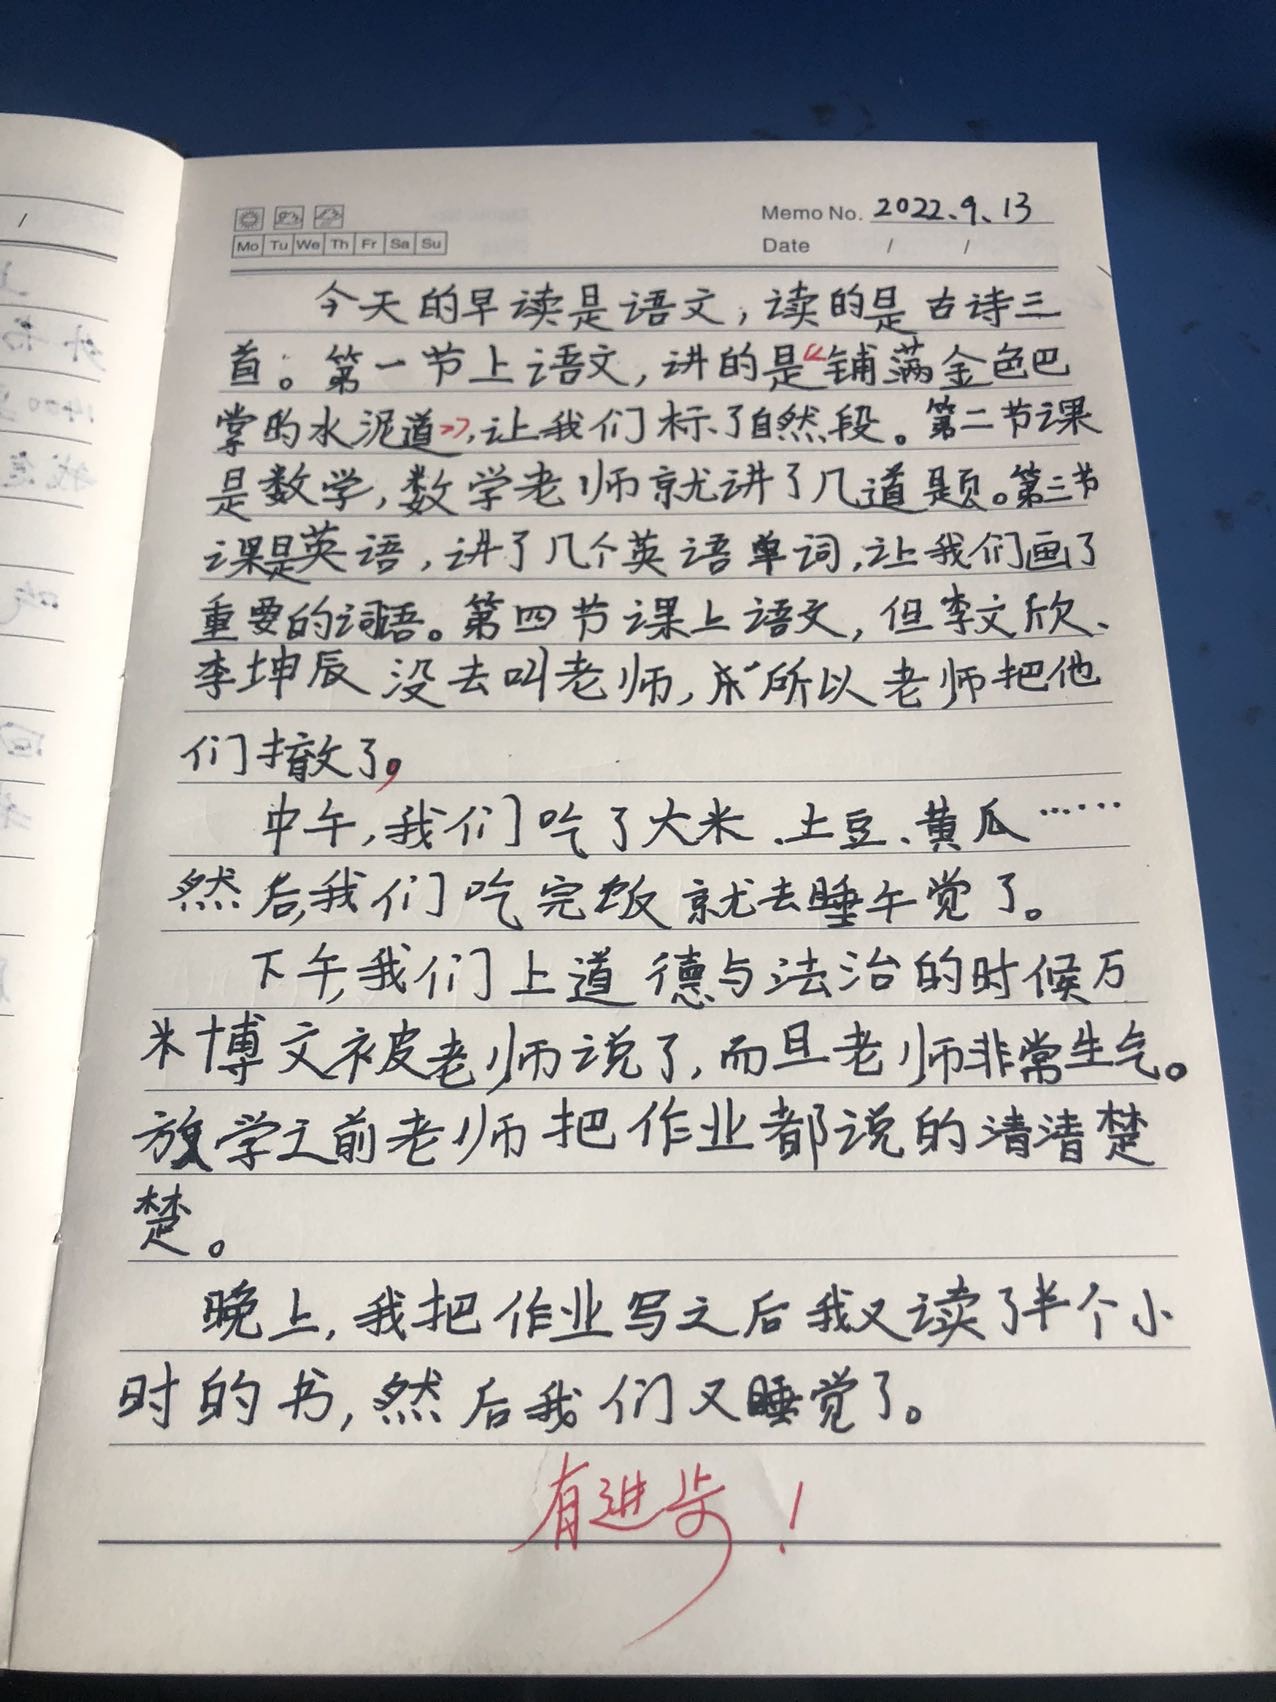 Memo No. 2022.9.13
Mo Tu We Th Fr Sa Su
Date / /
今天的早读是语文，读的是古诗三
首。第一节上语文，讲的是《铺满金色巴
掌的水泥道》，让我们标了自然段。第二节课
是数学，数学老师就讲了几道题。第三节
课是英语，讲了几个英语单词，让我们画了
重要的词语。第四节课上语文，但李文欣、
李坤辰没去叫老师，所以老师把他
们撤了。
中午，我们吃了大米、土豆、黄瓜……
然后，我们吃完饭就去睡午觉了。
下午，我们上道德与法治的时候万
米博文被老师说了，而且老师非常生气。
放学之前老师把作业都说的清清楚
楚。
晚上，我把作业写之后我又读了半个小
时的书，然后我们又睡觉了。
有进步！